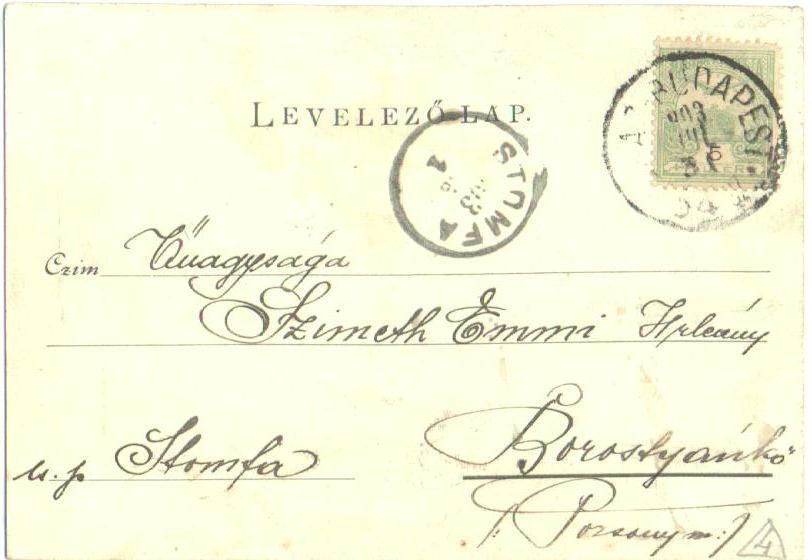 LEVELEZŐ-LAP.
BUDAPEST
903
STOMFA
903
1
5
Czim Őnagysága
Szimeth Emmi Urleány
u. p. Stomfa
Borostyánkő
/: Pozsony m: /
4